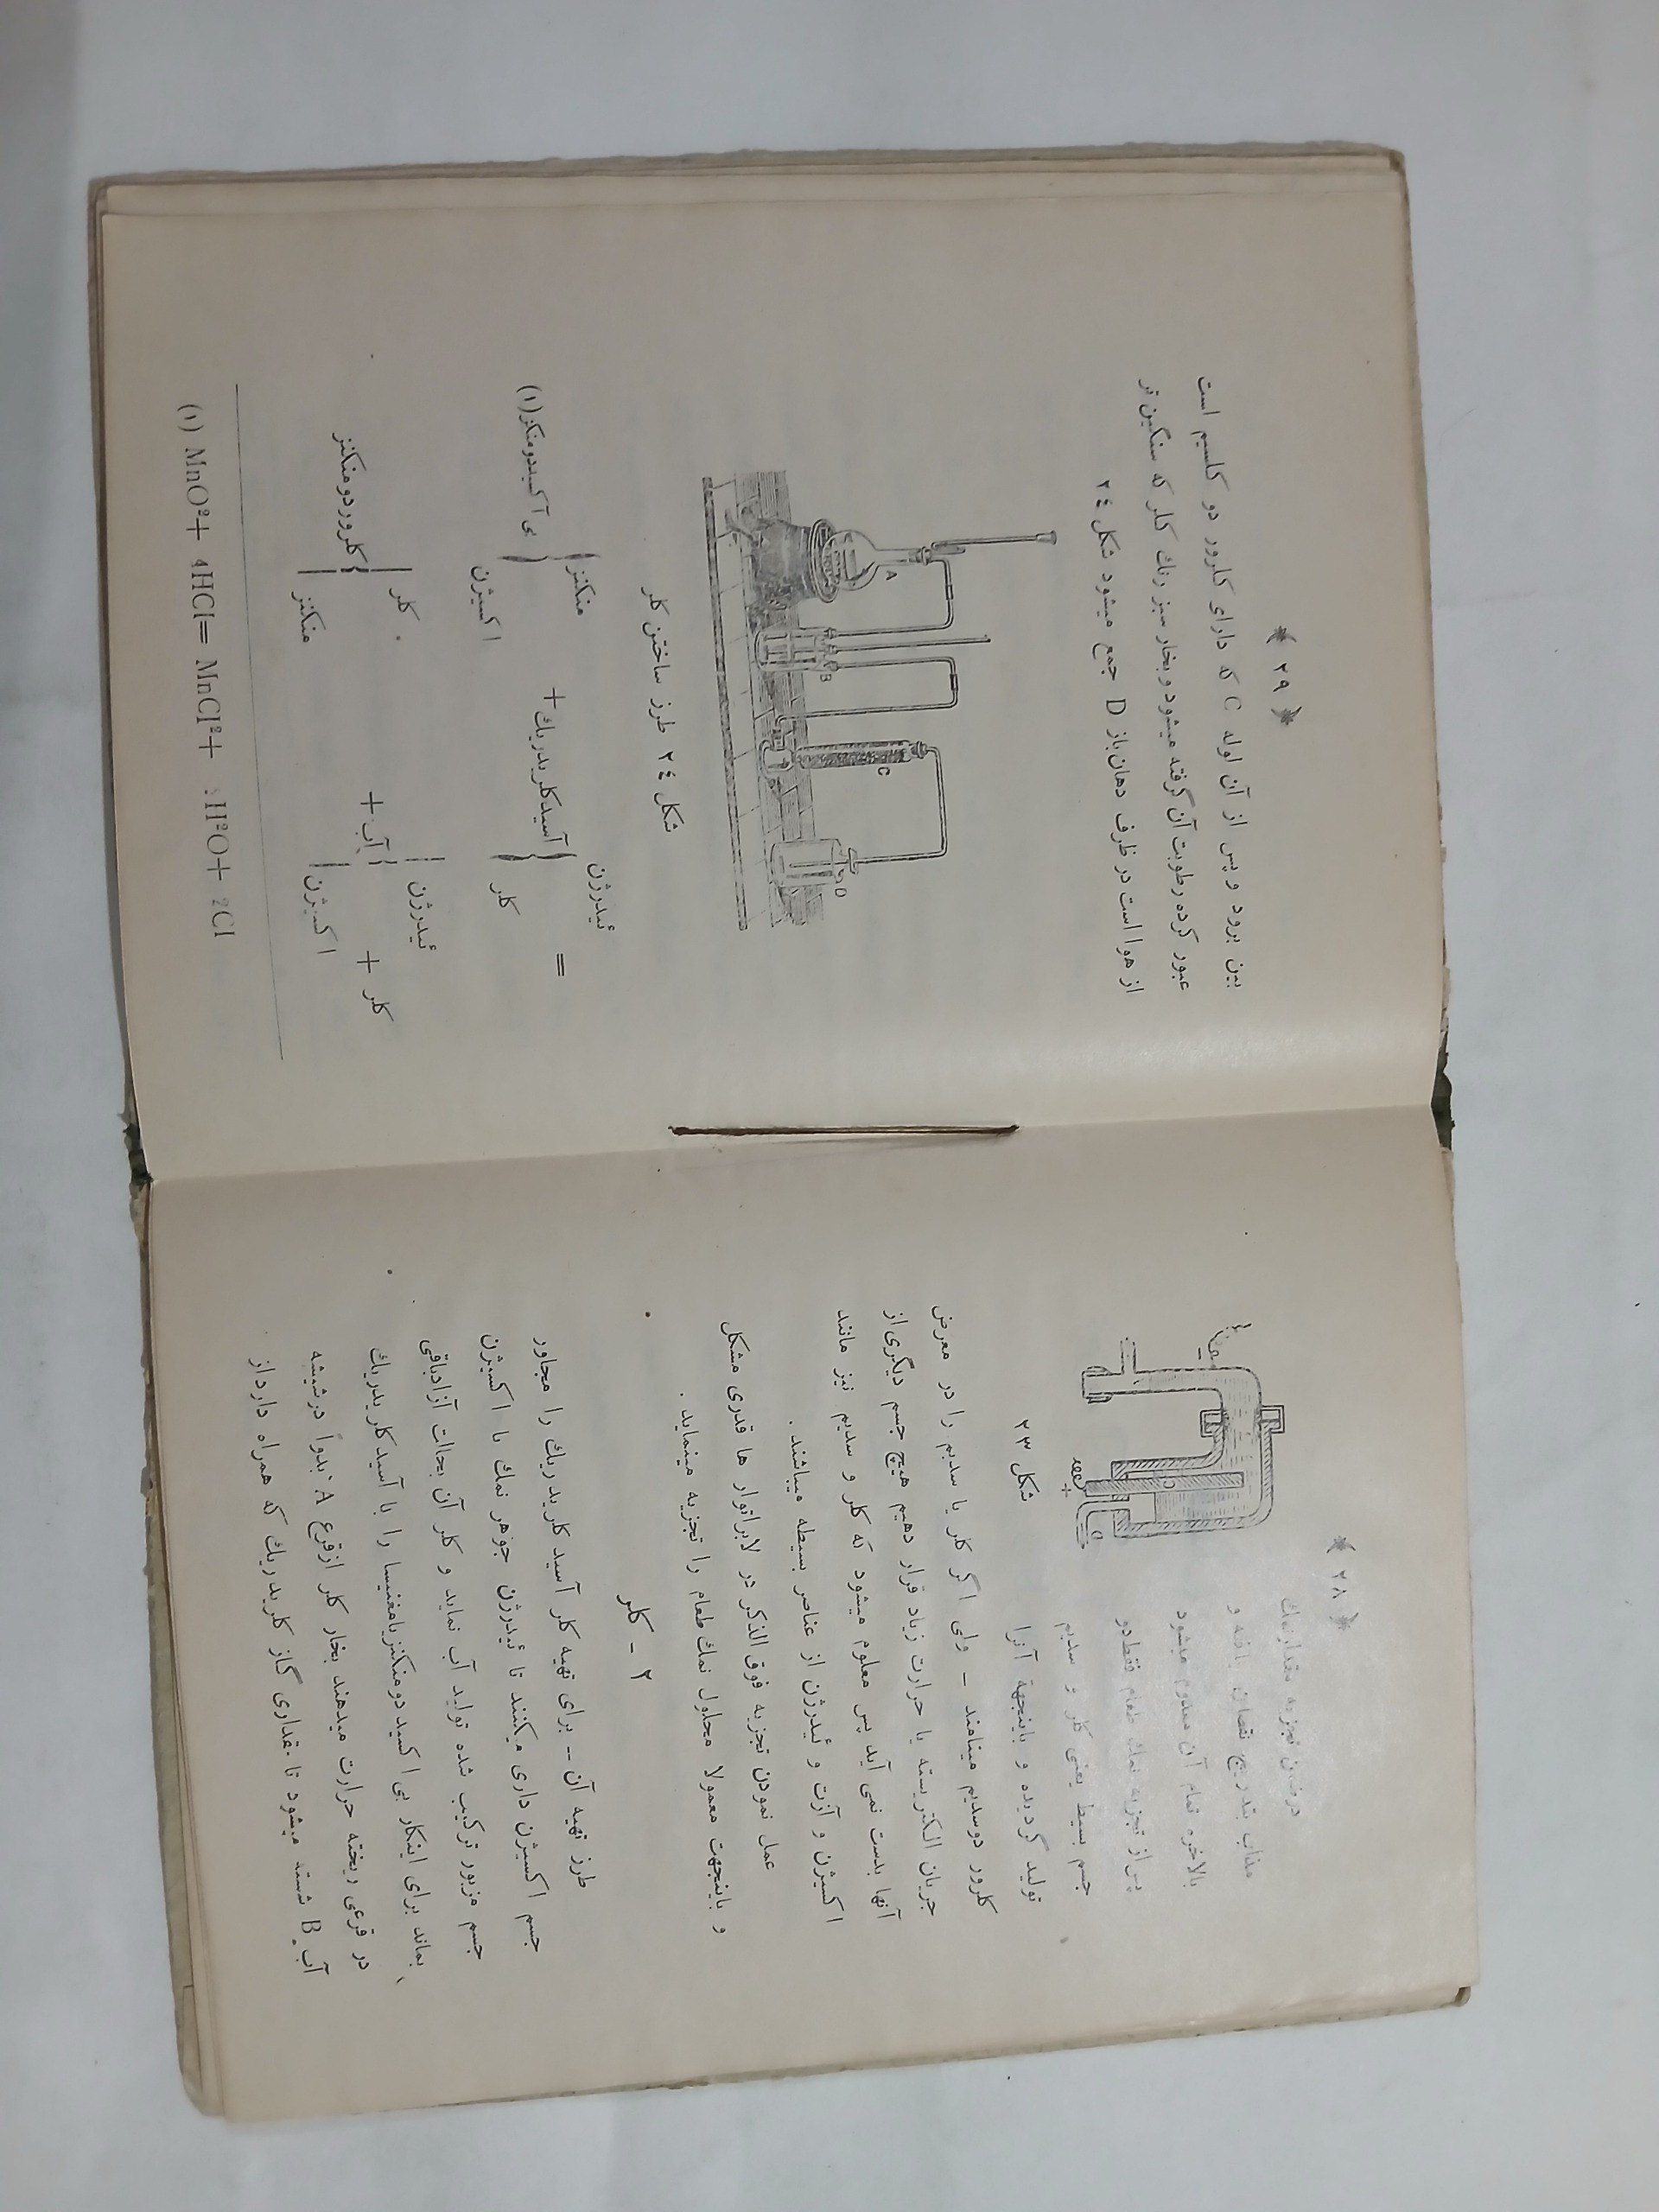 ﴿ ٢٨ ﴾
درضمن تجزیه مقدار نمك
مذاب بتدریج نقصان یافته و
بالاخره تمام آن معدوم میشود
پس از تجزیه نمك طعام فقط دو
جسم بسیط یعنی کلر و سدیم
تولید گردیده و باینجهة آنرا
شکل ٢٣
کلرور دوسدیم مینامند – ولی اگر کلر یا سدیم را در معرض
جریان الکتریسته یا حرارت زیاد قرار دهیم هیچ جسم دیگری از
آنها بدست نمی آید پس معلوم میشود که کلر و سدیم نیز مانند
اکسیژن و آزت و ئیدرژن از عناصر بسیطه میباشند .
عمل نمودن تجزیه فوق الذکر در لابراتوار ها قدری مشکل
و باینجهت معمولا محلول نمك طعام را تجزیه مینماید .
٢ - کلر
طرز تهیه آن – برای تهیه کلر آسید کلریدریك را مجاور
جسم اکسیژن داری میکنند تا ئیدرژن جوهر نمك با اکسیژن
جسم مزبور ترکیب شده تولید آب نماید و کلر آن بحالت آزاد باقی
بماند برای اینکار بی اکسید دومنکنز یامغنیسا را با آسید کلریدریك
در قرعی ریخته حرارت میدهند بخار کلر ازقرع A بدواً درشیشه
آب B شسته میشود تا مقداری گاز کلریدریك که همراه دارد از
﴿ ٢٩ ﴾
بین برود و پس از آن لوله C که دارای کلرور دو کلسیم است
عبور کرده رطوبت آن گرفته میشود و بخار سبز رنك کلر که سنگین تر
از هوا است در ظرف دهان باز D جمع میشود شکل ٢٤
A
B
C
D
شکل ٢٤ طرز ساختن کلر
ئیدرژن منکنز
= آسیدکلریدریك + بی آکسیددومنکنز(١)
کلر اکسیژن
ئیدرژن کلر
کلر + آب + کلروردومنکنز
اکسیژن منکنز
(١) MnO²+ 4HCl= MnCl²+ H²O+ 2Cl